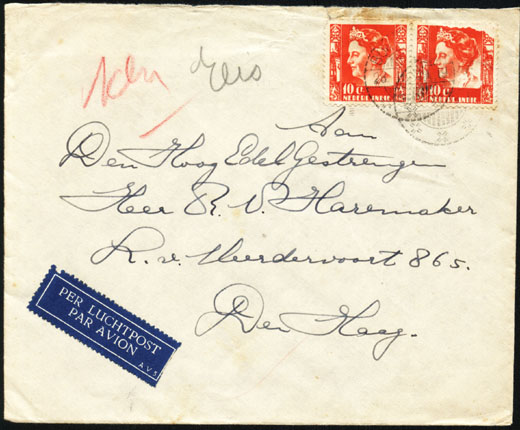 10 ct
NEDERL. INDIE
10 ct
NEDERL. INDIE
Aan
Den Hoog Edel Gestrengen
Heer R. V. Haremaker
L. v. Meerdervoort 865.
Den Haag.
PER LUCHTPOST
PAR AVION
A.V.5